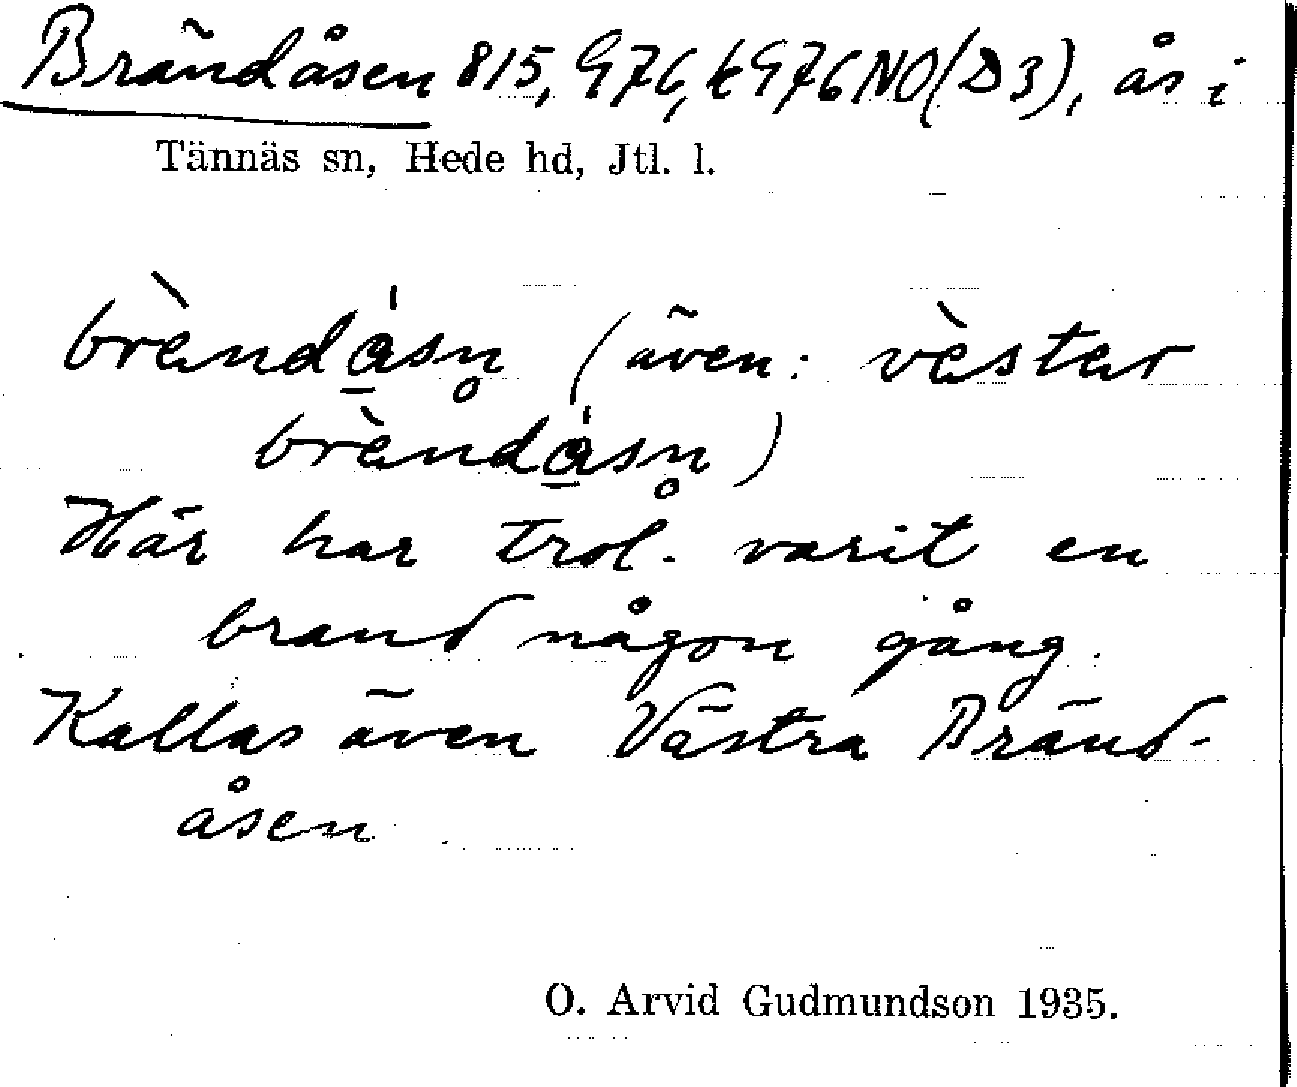 Brändåsen 815, G76, t G76 NO (D3), ås i
Tännäs sn, Hede hd, Jtl. l.
brèndåsn̥ (även: vèster
brèndåsn̥)
Här har trol. varit en
brand någon gång.
Kallas även Västra Bränd-
åsen
O. Arvid Gudmundson 1935.